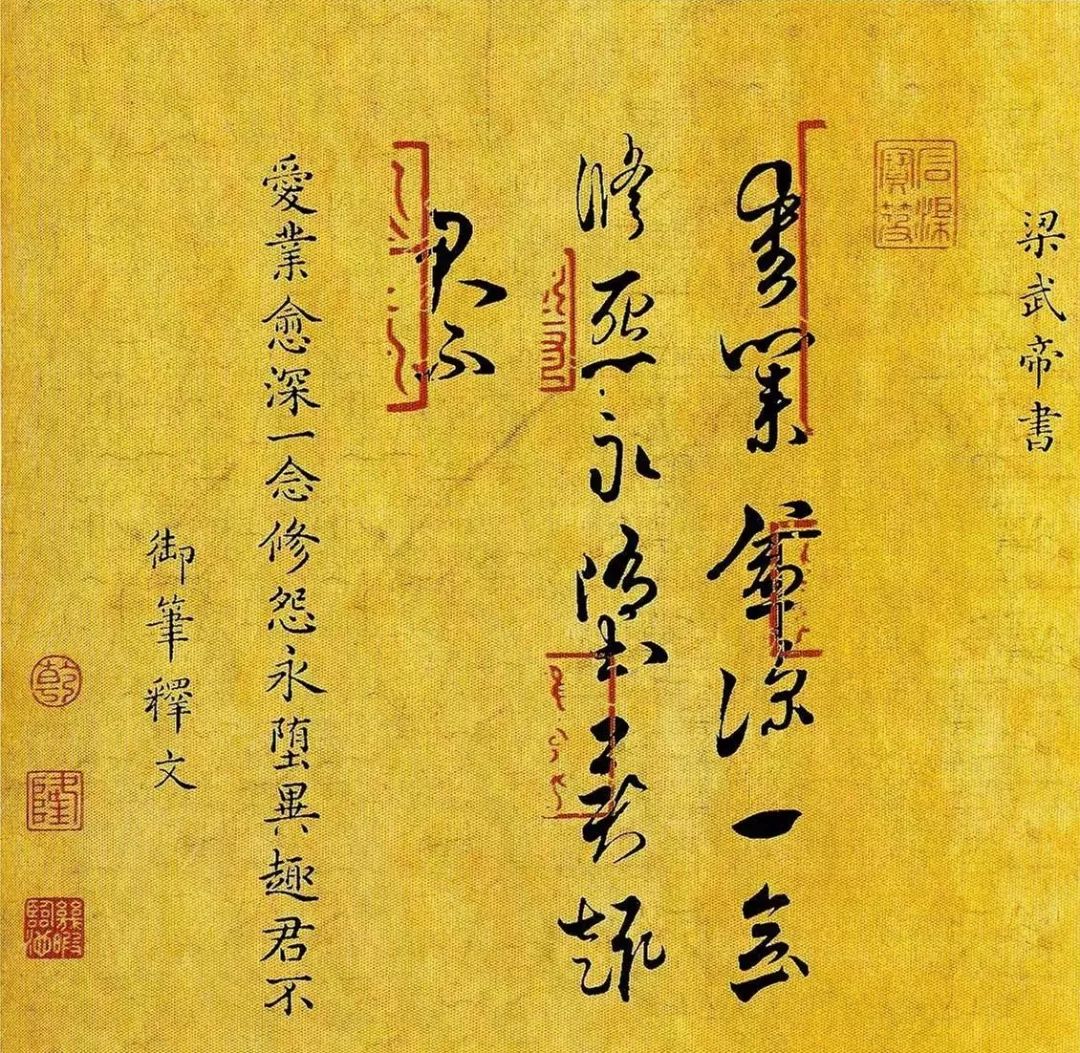 梁武帝書
愛業愈深一念
修怨永墮異趣
君不
愛業愈深一念修怨永堕異趣君不
御筆釋文
乾
隆
幾暇臨池